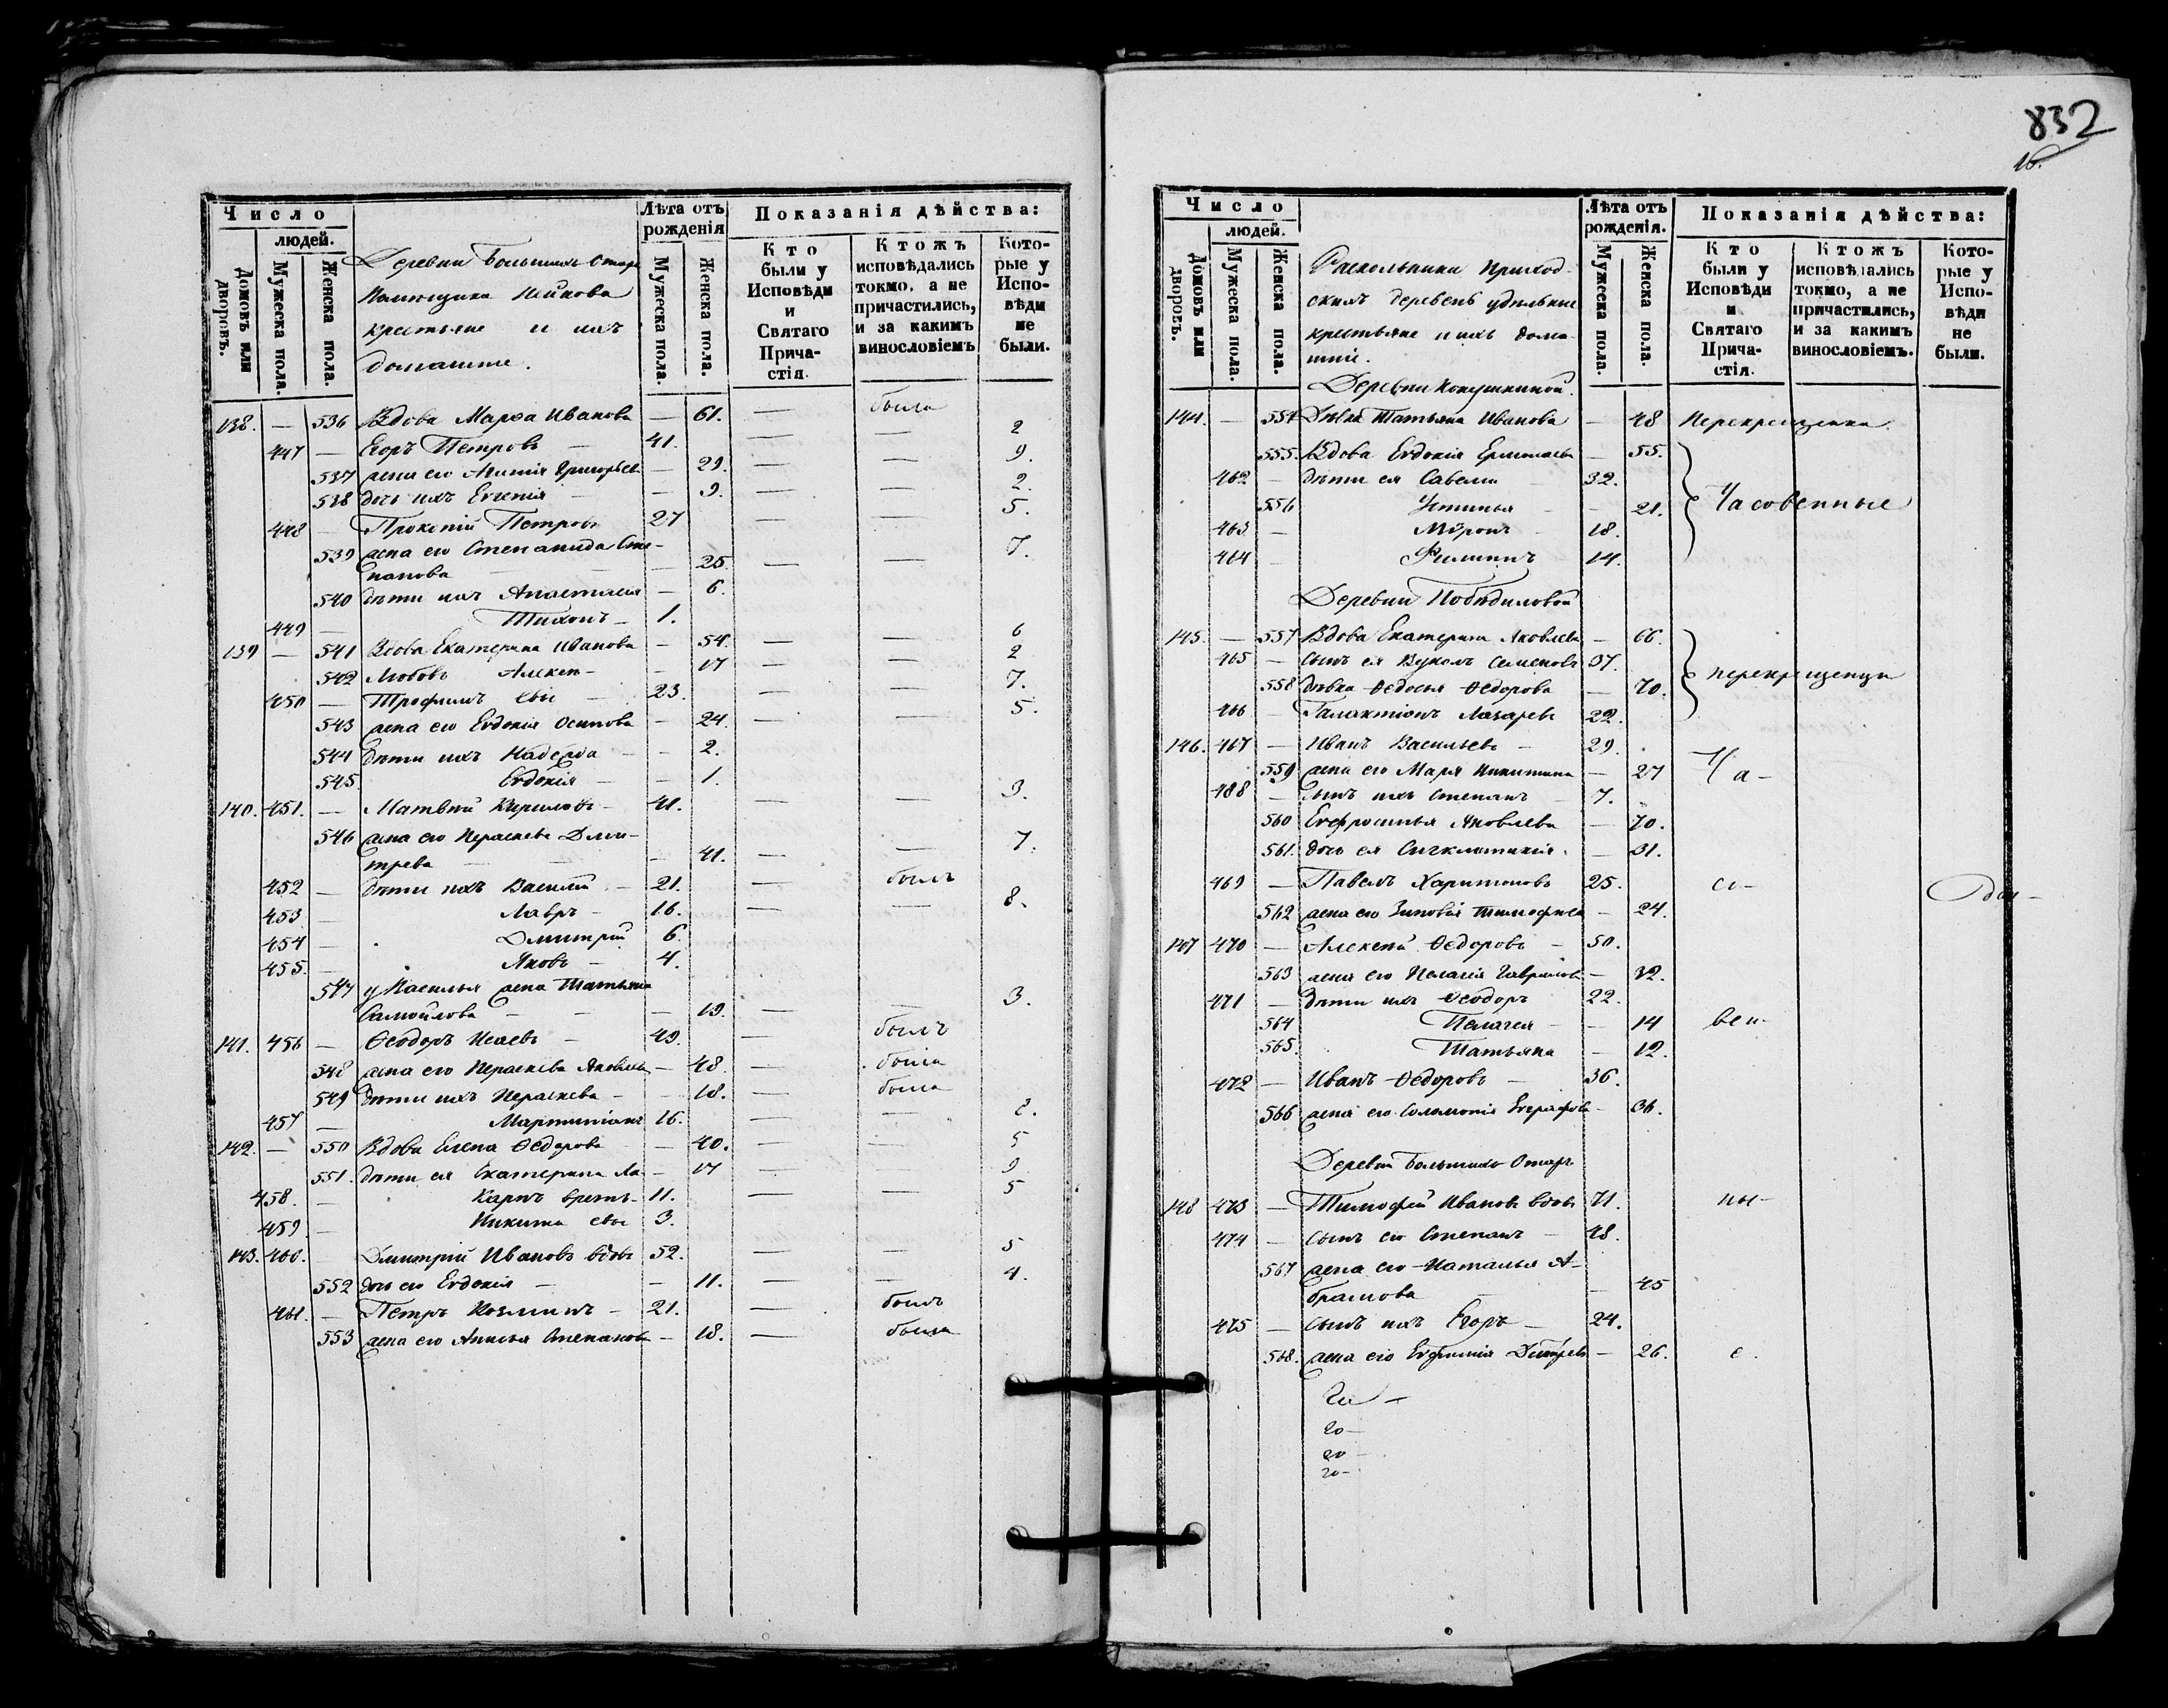 Число
людей.
Домовъ или дворовъ.
Мужеска пола.
Женска пола.
Деревни Большихъ Отаръ
Помѣщика Пейкова
крестьяне и ихъ
домашніе.
Лѣта отъ рожденія
Мужеска пола.
Женска пола.
Показанія дѣйства:
Кто были у Исповѣди и Святаго Причастія.
Ктожъ исповѣдались токмо, а не причастились, и за какимъ винословіемъ
Которые у Исповѣди не были.
138. — 536 Вдова Марѳа Иванова — 61. — была
447 — Егоръ Петровъ — 41. — — 2
537 жена его Григорьев — 29. — — 9.
538 дочь ихъ Евгенія — — 9. — — 2.
448 — Прокопій Петровъ 27 — — 5.
539 жена его Степанида Сте-
панова — 25. — — 7.
540 дѣти ихъ Анастасія — 6.
449 — Тихонъ — 1.
139 — 541 Вдова Екатерина Иванова — 54. — — 6
542 Любовь Алексѣ- 17 — — 2
450 — Трофимъ евы — 23. — — 7.
543 жена его Евдокія Осипова — 24. — — 5.
544 дѣти ихъ Надежда — — 2.
545 Евдокія — — 1.
140. 451. — Матвѣй Кириловъ — 41. — — 3.
546 жена его Параскева Дми-
трева — — 41. — — 7.
452 — дѣти ихъ Василій — 21. — былъ
453 — Лавръ — 16. — — 8.
454 — Дмитрій 6.
455. — Яковъ — 4.
547 у Василья жена Татьяна
Самойлова — — — 19. — — 3.
141. 456 — Ѳеодоръ Исаевъ — 49. — былъ
548 жена его Параскева Яковлева — 48. — была
549 дѣти ихъ Параскева — — 18. — была
457 — Мартиніанъ 16. — — 2.
142. — 550 Вдова Елена Ѳедорова — 40. — — 5
551. дѣти ея Екатерина Ла- — 17 — 9
458. — Карпъ врентъ- 11. — — 5
459. — Никита евы 3.
143. 460. Дмитрій Ивановъ вдовъ 52. — — 5
552 дочь его Евдокія — — 11. — — 4.
461. — Петръ Козминъ — 21. — былъ
553 жена его Анисья Степанова — 18. — была
832
Число
людей.
Домовъ или дворовъ.
Мужеска пола.
Женска пола.
Раскольники приход-
скихъ деревень удѣльные
крестьяне и ихъ дома-
шніе.
Деревни Кокушкиной.
Лѣта отъ рожденія.
Мужеска пола.
Женска пола.
Показанія дѣйства:
Кто были у Исповѣди и Святаго Причастія.
Ктожъ исповѣдались токмо, а не причастились, и за какимъ винословіемъ.
Которые у Исповѣди не были.
144. — 554 Дѣвка Татьяна Иванова — 48 Перекрещенка.
555. Вдова Евдокія Ермолаева — 55.
462 — дѣти ея Савелій 32.
556 Устинья — — 21. Часовенные
463 — Миронъ — 18.
464 — Филиппъ — 14.
Деревни Побѣдиловой
145. — 557 Вдова Екатерина Яковлева — 66.
465 — сынъ ея Вуколъ Семеновъ 37. перекрещенцы
558 дѣвка Ѳедосья Ѳедорова — 70.
466 — Галактіонъ Лазаревъ 22.
146. 467 — Иванъ Васильевъ — 29.
559 жена его Марья Никитина — 27 Ча-
468 — сынъ ихъ Степанъ — 7.
560 Евфросинья Яковлева — 70.
561. дочь ея Сигклитикія. — 31.
469 — Павелъ Харитоновъ 25. со- Оди-
562 жена его Зиновія Тимофѣева — 24.
147 470 — Алексѣй Ѳедоровъ — 50.
563 жена его Пелагія Гаврилова — 32.
471 — дѣти ихъ Ѳеодоръ 22.
564 Пелагея — — 14 вен-
565. Татьяна — 12.
472 — Иванъ Ѳедоровъ — 36.
566 жена его Соломонія Евграфова — 36.
Деревни Большихъ Отаръ
148 473 — Тимофей Ивановъ вдовъ 71. ны-
474 — сынъ его Степанъ — 48.
567 жена его Наталья А-
брамова — — 45
475 — сынъ ихъ Егоръ — 24.
568. жена его Евфимія Дмитріева — 26. е.